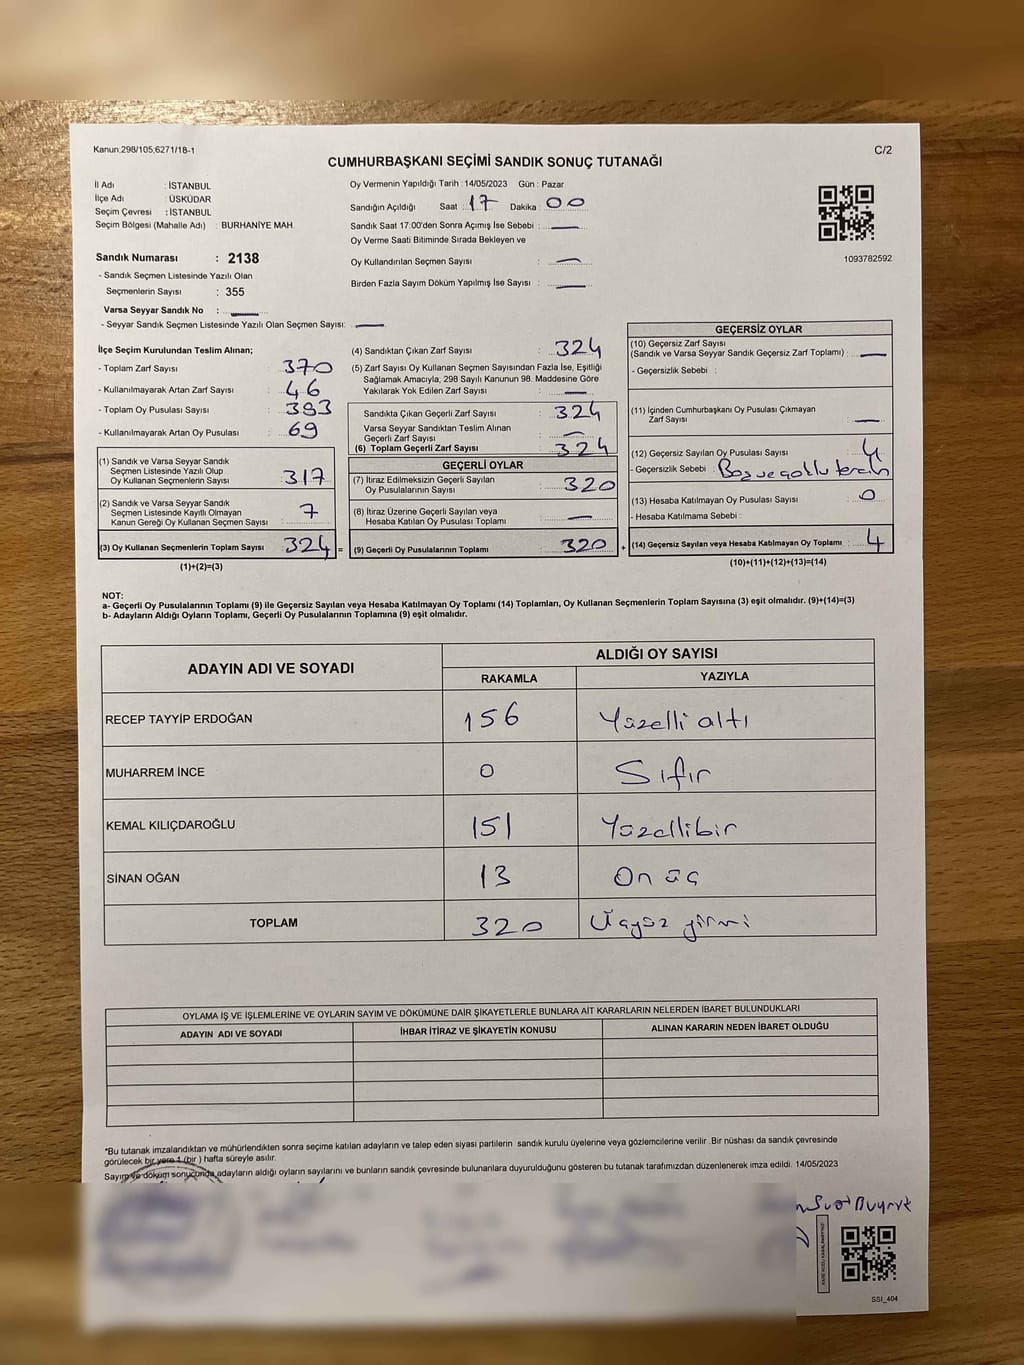 Kanun:298/105,6271/18-1
C/2
CUMHURBAŞKANI SEÇİMİ SANDIK SONUÇ TUTANAĞI
İl Adı : İSTANBUL
İlçe Adı : ÜSKÜDAR
Seçim Çevresi : İSTANBUL
Seçim Bölgesi (Mahalle Adı) : BURHANİYE MAH.
Sandık Numarası : 2138
- Sandık Seçmen Listesinde Yazılı Olan
Seçmenlerin Sayısı : 355
Varsa Seyyar Sandık No :
- Seyyar Sandık Seçmen Listesinde Yazılı Olan Seçmen Sayısı:
Oy Vermenin Yapıldığı Tarih :14/05/2023 Gün : Pazar
Sandığın Açıldığı Saat : 17 Dakika : 00
Sandık Saat 17:00'den Sonra Açımış İse Sebebi :
Oy Verme Saati Bitiminde Sırada Bekleyen ve
Oy Kullandırılan Seçmen Sayısı :
Birden Fazla Sayım Döküm Yapılmış İse Sayısı :
1093782592
İlçe Seçim Kurulundan Teslim Alınan;
- Toplam Zarf Sayısı : 370
- Kullanılmayarak Artan Zarf Sayısı : 46
- Toplam Oy Pusulası Sayısı : 393
- Kullanılmayarak Artan Oy Pusulası : 69
(1) Sandık ve Varsa Seyyar Sandık
Seçmen Listesinde Yazılı Olup
Oy Kullanan Seçmenlerin Sayısı : 317
(2) Sandık ve Varsa Seyyar Sandık
Seçmen Listesinde Kayıtlı Olmayan
Kanun Gereği Oy Kullanan Seçmen Sayısı : 7
(3) Oy Kullanan Seçmenlerin Toplam Sayısı : 324 =
(1)+(2)=(3)
(4) Sandıktan Çıkan Zarf Sayısı : 324
(5) Zarf Sayısı Oy Kullanan Seçmen Sayısından Fazla İse, Eşitliği
Sağlamak Amacıyla, 298 Sayılı Kanunun 98. Maddesine Göre
Yakılarak Yok Edilen Zarf Sayısı :
Sandıkta Çıkan Geçerli Zarf Sayısı : 324
Varsa Seyyar Sandıktan Teslim Alınan
Geçerli Zarf Sayısı :
(6) Toplam Geçerli Zarf Sayısı : 324
GEÇERLİ OYLAR
(7) İtiraz Edilmeksizin Geçerli Sayılan
Oy Pusulalarının Sayısı : 320
(8) İtiraz Üzerine Geçerli Sayılan veya
Hesaba Katılan Oy Pusulası Toplamı :
(9) Geçerli Oy Pusulalarının Toplamı : 320 +
GEÇERSİZ OYLAR
(10) Geçersiz Zarf Sayısı
(Sandık ve Varsa Seyyar Sandık Geçersiz Zarf Toplamı) :
- Geçersizlik Sebebi :
(11) İçinden Cumhurbaşkanı Oy Pusulası Çıkmayan
Zarf Sayısı :
(12) Geçersiz Sayılan Oy Pusulası Sayısı : 4
- Geçersizlik Sebebi : Boş ve çoklu tercih
(13) Hesaba Katılmayan Oy Pusulası Sayısı : 0
- Hesaba Katılmama Sebebi :
(14) Geçersiz Sayılan veya Hesaba Katılmayan Oy Toplamı : 4
(10)+(11)+(12)+(13)=(14)
NOT:
a- Geçerli Oy Pusulalarının Toplamı (9) ile Geçersiz Sayılan veya Hesaba Katılmayan Oy Toplamı (14) Toplamları, Oy Kullanan Seçmenlerin Toplam Sayısına (3) eşit olmalıdır. (9)+(14)=(3)
b- Adayların Aldığı Oyların Toplamı, Geçerli Oy Pusulalarının Toplamına (9) eşit olmalıdır.
ADAYIN ADI VE SOYADI
ALDIĞI OY SAYISI
RAKAMLA YAZIYLA
RECEP TAYYİP ERDOĞAN 156 Yüzelli altı
MUHARREM İNCE 0 Sıfır
KEMAL KILIÇDAROĞLU 151 Yüzellibir
SİNAN OĞAN 13 On üç
TOPLAM 320 Üçyüz yirmi
OYLAMA İŞ VE İŞLEMLERİNE VE OYLARIN SAYIM VE DÖKÜMÜNE DAİR ŞİKAYETLERLE BUNLARA AİT KARARLARIN NELERDEN İBARET BULUNDUKLARI
ADAYIN ADI VE SOYADI İHBAR İTİRAZ VE ŞİKAYETİN KONUSU ALINAN KARARIN NEDEN İBARET OLDUĞU
*Bu tutanak imzalandıktan ve mühürlendikten sonra seçime katılan adayların ve talep eden siyasi partilerin sandık kurulu üyelerine veya gözlemcilerine verilir .Bir nüshası da sandık çevresinde
görülecek bir yere 1 (bir ) hafta süreyle asılır.
Sayım ve döküm sonucunda adayların aldığı oyların sayılarını ve bunların sandık çevresinde bulunanlara duyurulduğunu gösteren bu tutanak tarafımızdan düzenlenerek imza edildi. 14/05/2023
SSI_404